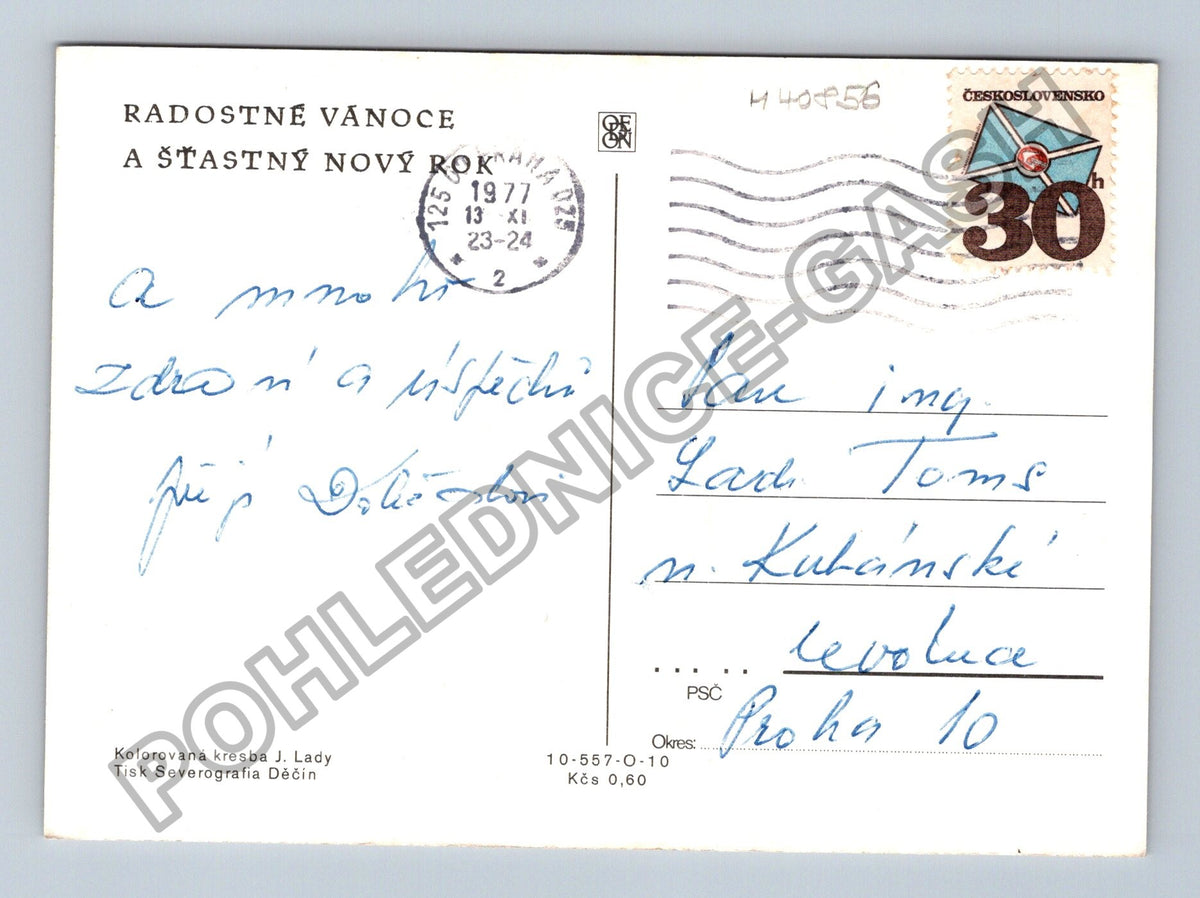 RADOSTNÉ VÁNOCE
A ŠŤASTNÝ NOVÝ ROK
a mnoho
zdraví a úspěchů
přejí
125 PRAHA 025
1977
13 XI
23-24
2
ODEON
H40856
ČESKOSLOVENSKO
30h
Pan ing.
Lad. Toms
n. Kubánské
revoluce
PSČ
Okres: Praha 10
Kolorovaná kresba J. Lady
Tisk Severografia Děčín
10-557-O-10
Kčs 0,60
POHLEDNICE-GASH